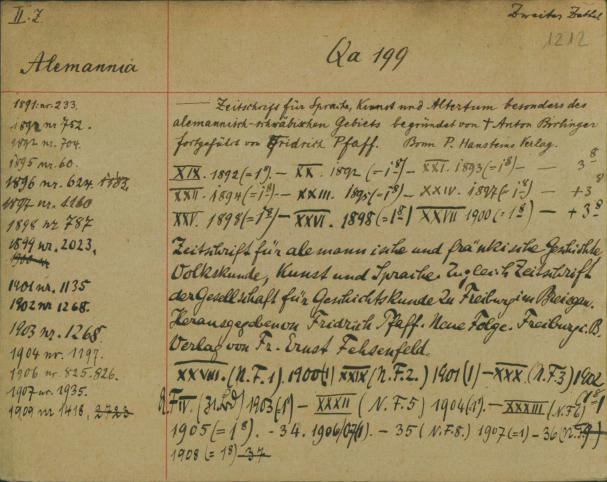 II. Z
Zweiter Zettel
1212
Alemannia
Qa 199
1891. nr. 233.
1892 nr 752.
1892 nr. 704.
1895 nr. 60.
1896 nr. 624. 1183.
1897 nr. 1160
1898 nr 787
1899 nr. 2023,
1901 nr. 1135
1902 nr 1268.
1903 nr. 1268.
1904 nr. 1197.
1906 nr. 825.826.
1907 nr. 1935.
1909 nr 1418, 2723
— Zeitschrift für Sprache, Kunst und Altertum besonders des
alemannisch-schwäbischen Gebiets begründet von † Anton Birlinger
fortgeführt von Fridrich Pfaff. Bonn P. Hansteins Verlag.
XIX. 1892 (=18). — XX. 1892 (=i8) — XXI. 1893 (=i8) — — 3 8
XXII. 1894 (=i8) — XXIII. 1895 (=i8) — XXIV. 1897 (=i8) — +3 8
XXV. 1898 (=i8) — XXVI. 1898 (=1 8) XXVII 1900 (=1 8) — +3 8
Zeitschrift für alemannische und fränkische Geschichte,
Volkskunde, Kunst und Sprache. Zugleich Zeitschrift
der Gesellschaft für Geschichtskunde zu Freiburg im Breisgau.
Herausgegeben von Fridrich Pfaff. Neue Folge. Freiburg i. B.
Verlag von Fr. Ernst Fehsenfeld.
XXVIII. (N.F.1). 1900 (1) XXIX (N.F.2.) 1901 (1) — XXX. (N.F.3) 1902
N.F. IV. (31. Bd) 1903 (18) — XXXII (N.F.5) 1904 (1). — XXXIII (N.F.6)
1905 (= i8). - 34. 1906/07 (1). - 35 (N.F.8.) 1907 (=1) - 36 (N.F.9)
1908 (= 18) - 37